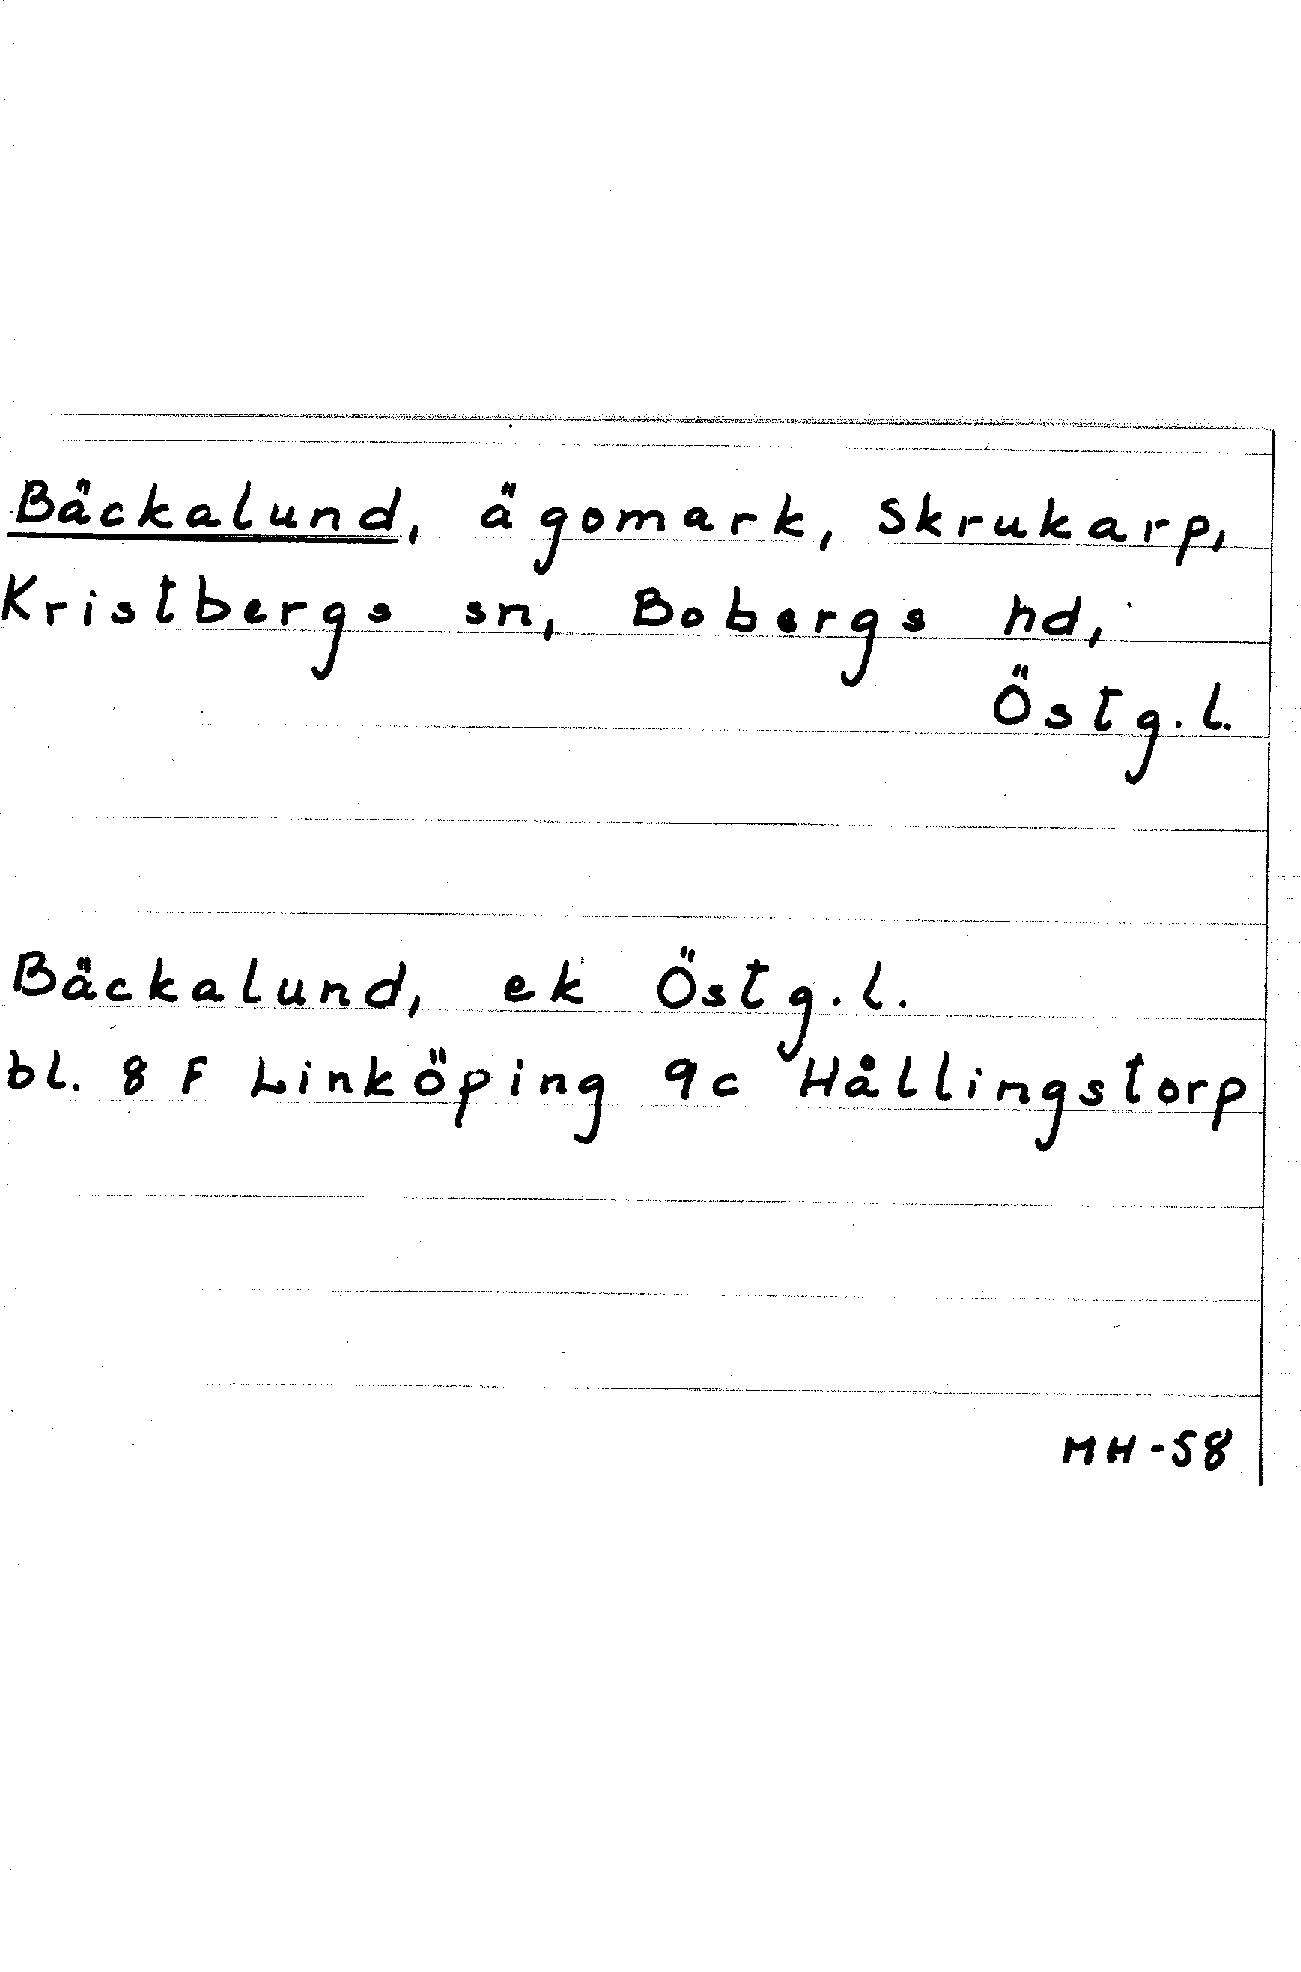 Bäckalund, ägomark, Skrukarp,
Kristbergs sn, Bobergs hd,
Östg.l.
Bäckalund, ek Östg.l.
bl. 8 F Linköping 9c Hållingstorp
MH-58